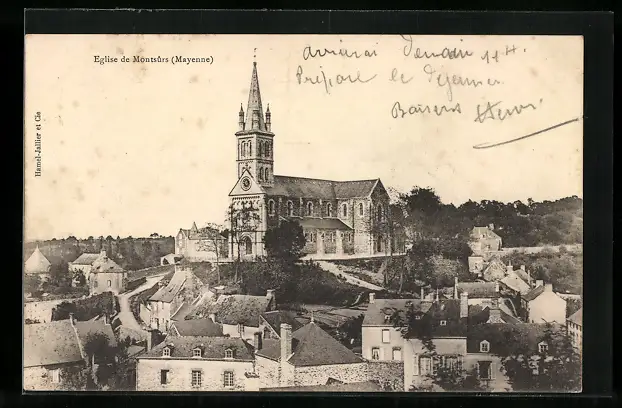 Eglise de Montsûrs (Mayenne)
arriverai Demain 11 H.
Prépare le déjeuner.
Baisers Henri
Hamel-Jallier et Cie